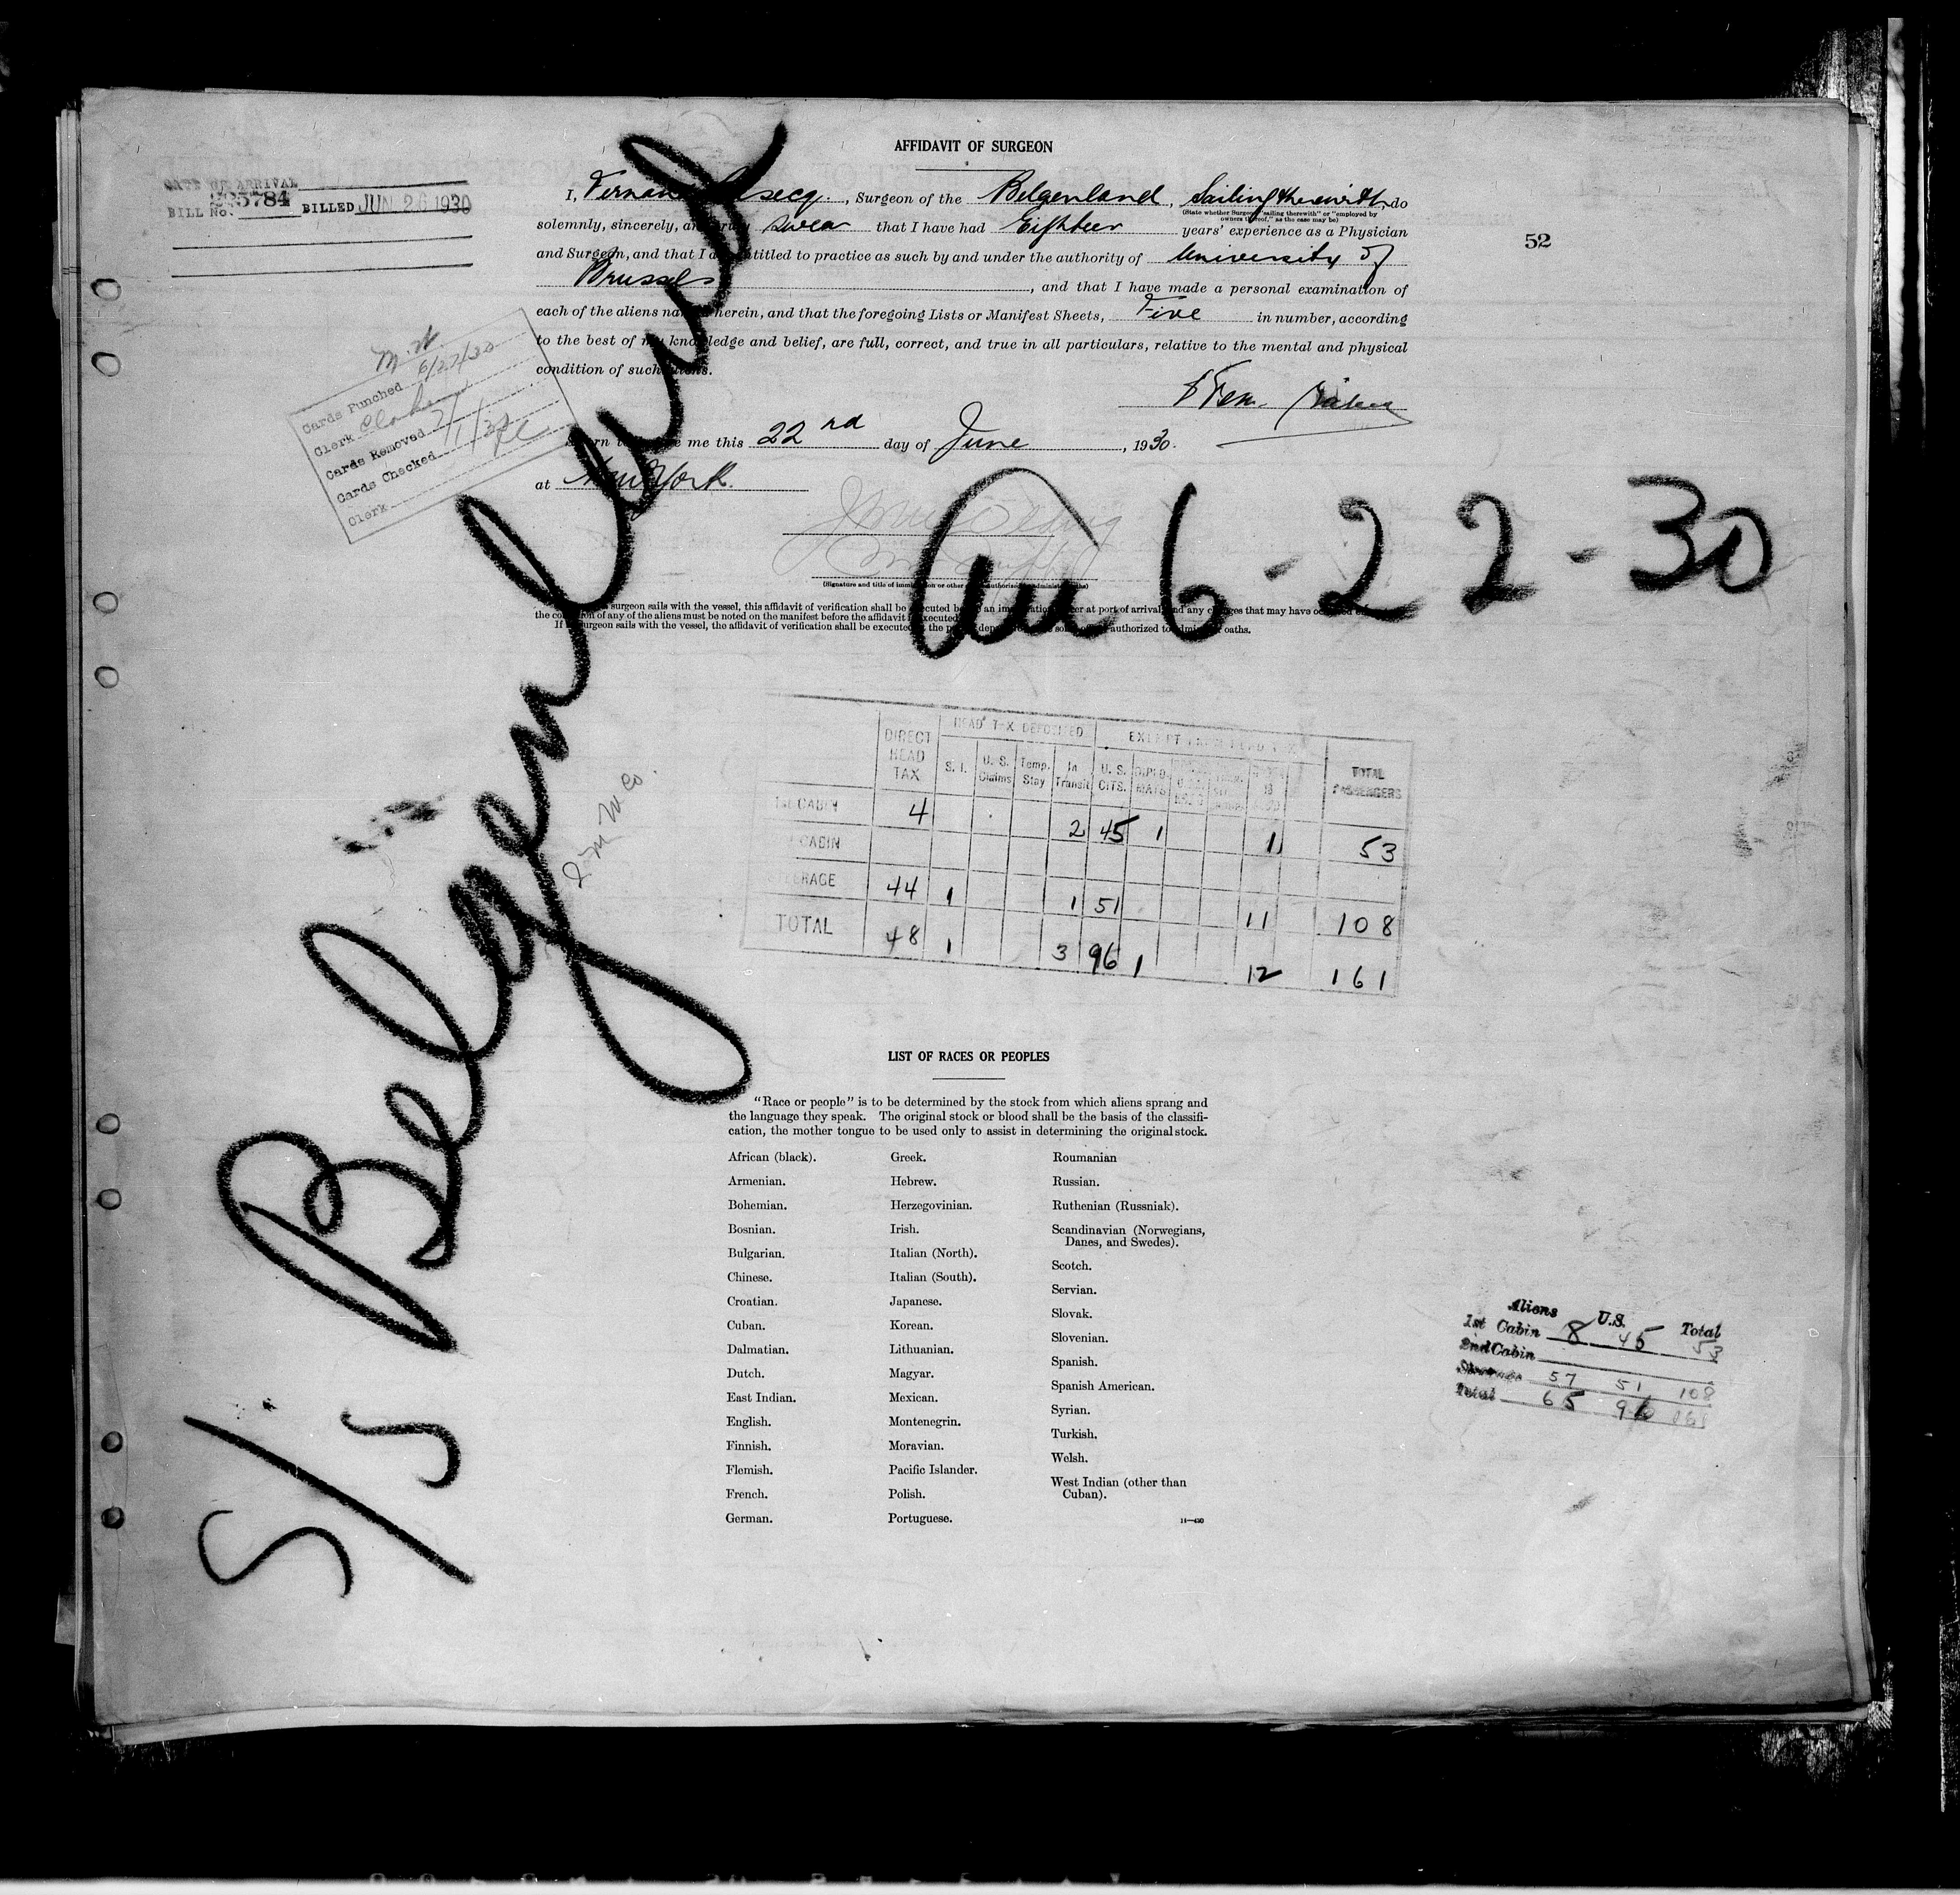 AFFIDAVIT OF SURGEON
DATE OF ARRIVAL
BILL No. 5784 BILLED JUN 26 1930
52
I, Fernand , Surgeon of the Belgenland, Sailing therewith, do
(State whether Surgeon "sailing therewith" or "employed by
owners thereof," as the case may be)
solemnly, sincerely, and truly swear that I have had Eighteen years' experience as a Physician
and Surgeon, and that I am entitled to practice as such by and under the authority of University of
Brussels, and that I have made a personal examination of
each of the aliens named herein, and that the foregoing Lists or Manifest Sheets, Five in number, according
to the best of my knowledge and belief, are full, correct, and true in all particulars, relative to the mental and physical
condition of such aliens.
Sworn to before me this 22nd day of June, 1930.
at New York.
(Signature and title of immigration or other officer authorized to administer oaths)
surgeon sails with the vessel, this affidavit of verification shall be executed before an immigration officer at port of arrival, and any changes that may have occurred
the condition of any of the aliens must be noted on the manifest before the affidavit is executed
If surgeon sails with the vessel, the affidavit of verification shall be executed at the port authorized to administer oaths.
M.W.
Cards Punched 6/27/30
Clerk
Cards Removed
Cards Checked
Clerk
S/S Belgenland
6-22-30
DIRECT HEAD TAX HEAD TAX DEPOSITED EXEMPT FROM HEAD TAX TOTAL PASSENGERS
S. I. U. S. Claims Temp. Stay In Transit U. S. CITS. DIPLO MATS
1st CABIN 4 2 45 1 1 53
CABIN
STEERAGE 44 1 1 51 11 108
TOTAL 48 1 3 96 1 12 161
LIST OF RACES OR PEOPLES
"Race or people" is to be determined by the stock from which aliens sprang and
the language they speak. The original stock or blood shall be the basis of the classifi-
cation, the mother tongue to be used only to assist in determining the original stock.
African (black).
Armenian.
Bohemian.
Bosnian.
Bulgarian.
Chinese.
Croatian.
Cuban.
Dalmatian.
Dutch.
East Indian.
English.
Finnish.
Flemish.
French.
German.
Greek.
Hebrew.
Herzegovinian.
Irish.
Italian (North).
Italian (South).
Japanese.
Korean.
Lithuanian.
Magyar.
Mexican.
Montenegrin.
Moravian.
Pacific Islander.
Polish.
Portuguese.
Roumanian
Russian.
Ruthenian (Russniak).
Scandinavian (Norwegians,
Danes, and Swedes).
Scotch.
Servian.
Slovak.
Slovenian.
Spanish.
Spanish American.
Syrian.
Turkish.
Welsh.
West Indian (other than
Cuban).
Aliens U.S. Total
1st Cabin 8 45 53
2nd Cabin
Steerage 57 51 108
Total 65 96 161